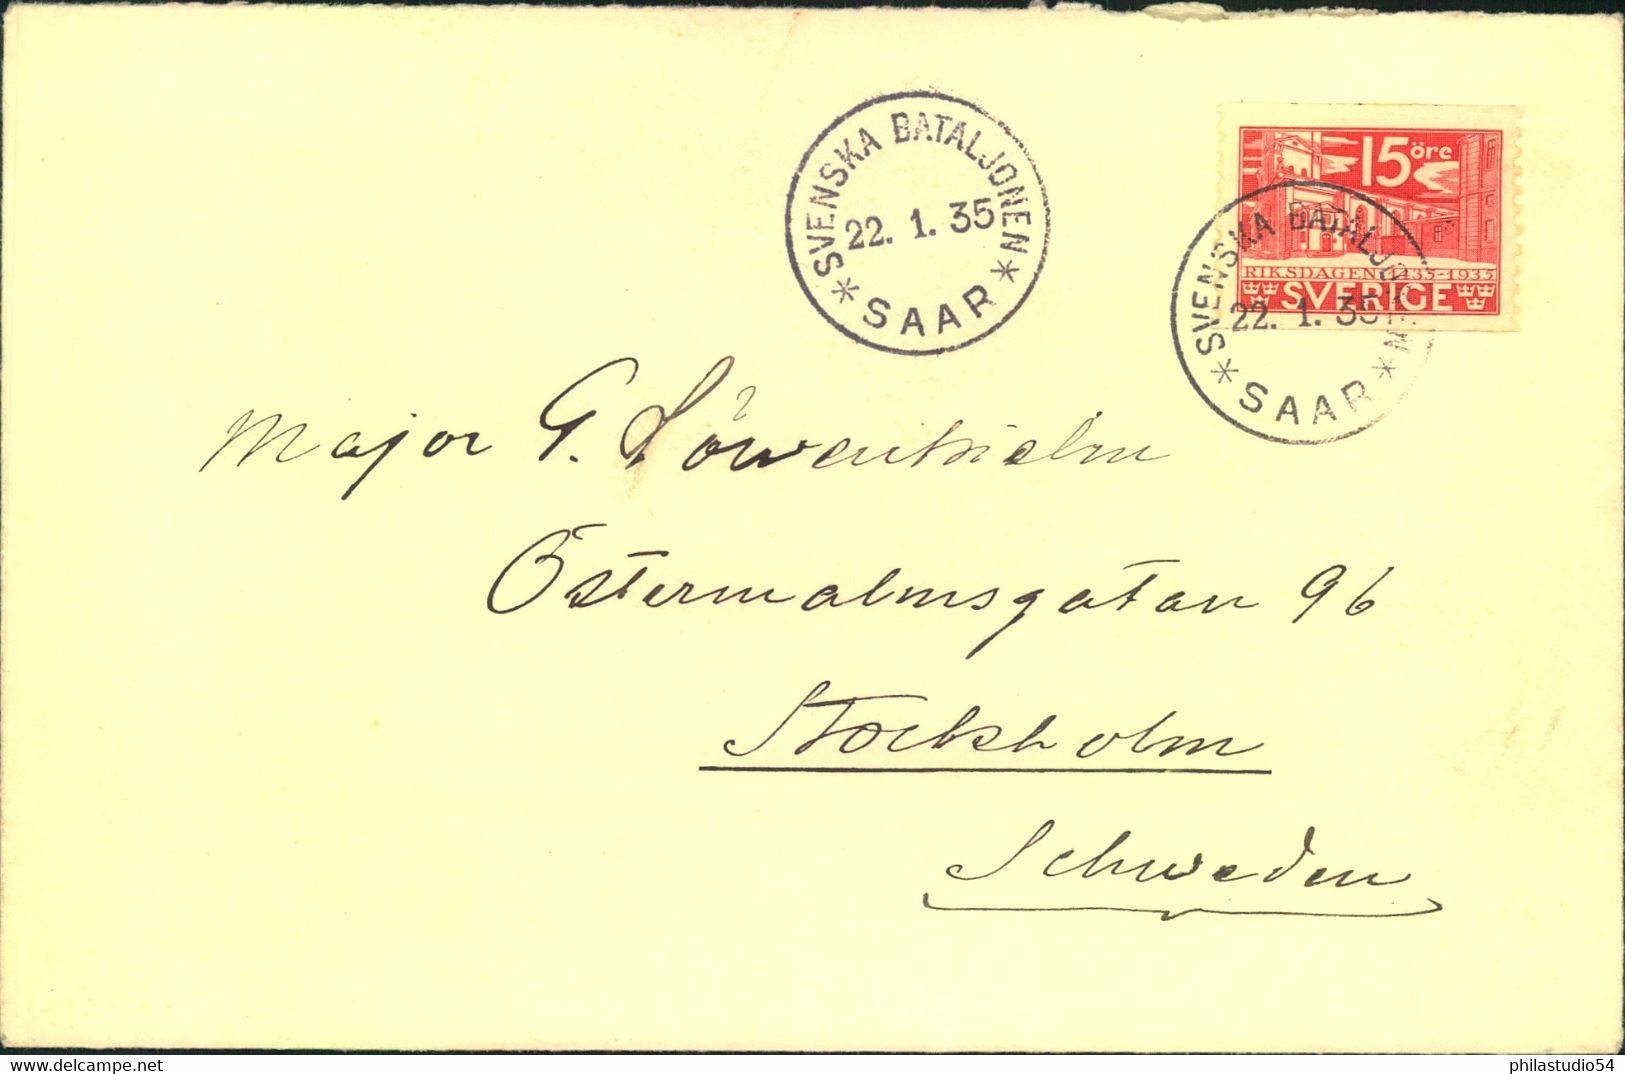 SVENSKA BATALJONEN
22. 1. 35
* SAAR *
15 öre
RIKSDAGEN 1435-1935
SVERIGE
SVENSKA BATALJONEN
22. 1. 35
* SAAR *
Major G. Löwenhielm
Östermalmsgatan 96
Stockholm
Schweden
philastudio54